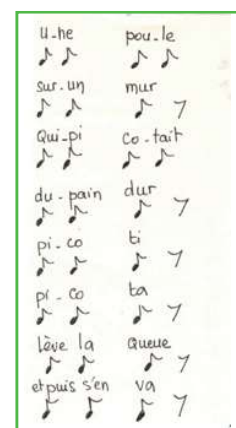 U-ne pou-le
sur-un mur
Qui-pi co-tait
du-pain dur
pi-co ti
pi-co ta
lève la Queue
et puis s'en va